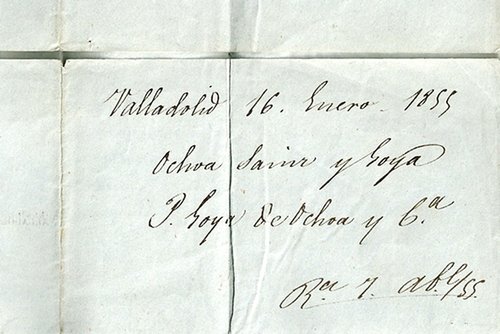 Valladolid 16. Enero. 1855
Ochoa Sainz y Goya
P. Goya de Ochoa y C.ª
R.ª 7. ab.l/55.